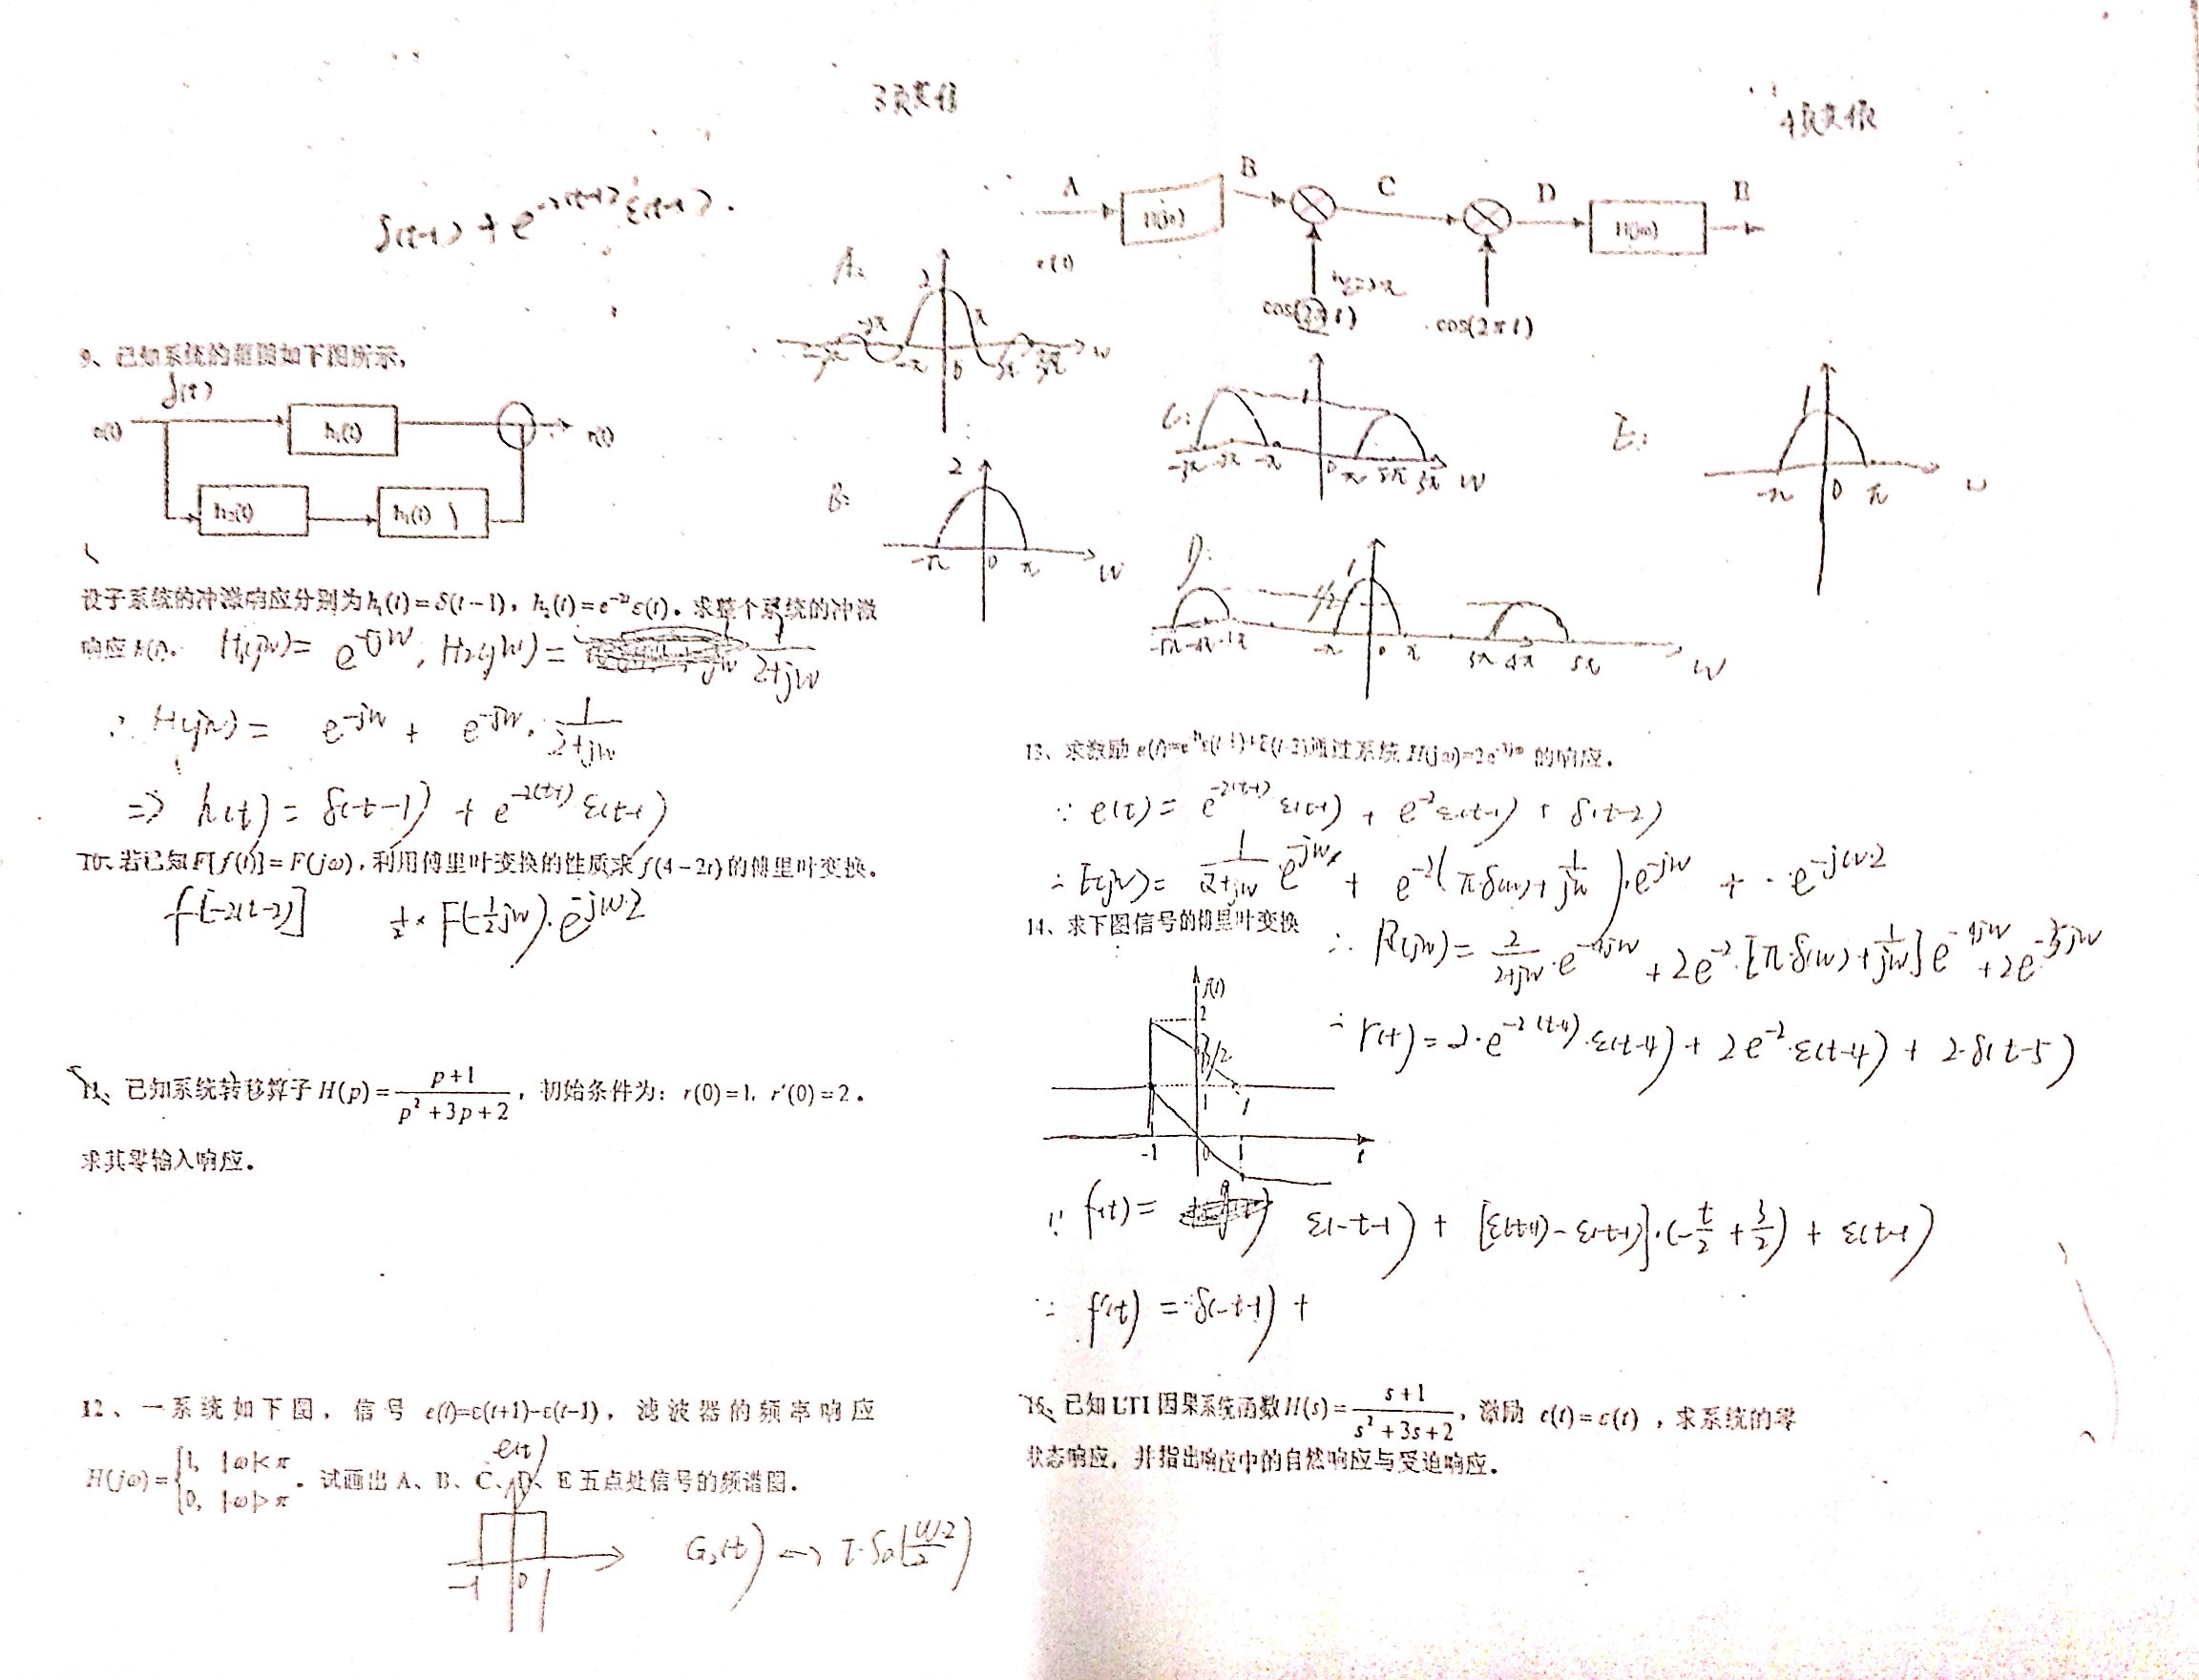 3页共4页
4页共4页
δ(t-1) + e^{-2(t-1)} ε(t-1).
9、已知系统的框图如下图所示,
δ(t)
e(t)
h₁(t)
r(t)
h₂(t)
h₁(t)
设子系统的冲激响应分别为h₁(t)=δ(t-1), h₂(t)=e^{-2t}ε(t)。求整个系统的冲激
响应h(t)。 H₁(jw)= e^{-jw}, H₂(jw)= 1/(2+jw)
∴ H(jw)= e^{-jw} + e^{-jw}·1/(2+jw)
=> h(t) = δ(t-1) + e^{-2(t-1)} ε(t-1)
10、若已知F[f(t)]=F(jω),利用傅里叶变换的性质求f(4-2t)的傅里叶变换。
f[-2(t-2)] 1/2 × F(-1/2 jw)·e^{-jw·2}
11、已知系统转移算子H(p)=(p+1)/(p²+3p+2),初始条件为:r(0)=1, r'(0)=2。
求其零输入响应。
12、一系统如下图,信号 e(t)=ε(t+1)-ε(t-1),滤波器的频率响应
H(jω)={1, |ω|<π
0, |ω|>π。试画出A、B、C、D、E五点处信号的频谱图。
e(t)
-1 0 1
G₂(t) <-> τ·Sa(w·2/2)
A B C D E
e(t) H(jω) H(jω)
cos(2πt) cos(2πt)
A:
2
-π 0 π 2π 3π w
B:
2
-π 0 π w
C:
1
-3π -2π -π 0 π 2π 3π w
D:
1
1/2
-5π -4π -3π -π 0 π 3π 4π 5π w
E:
1
-π 0 π w
13、求激励e(t)=e^{-2t}ε(t-1)+δ(t-2)通过系统H(jω)=2e^{-3jω}的响应。
∵ e(t) = e^{-2(t-1)} ε(t-1) + e^{-2} ε(t-1) + δ(t-2)
∴ E(jw)= 1/(2+jw) e^{-jw} + e^{-2}(π·δ(w)+1/jw)·e^{-jw} + e^{-jw·2}
14、求下图信号的傅里叶变换
∴ R(jw)= 2/(2+jw)·e^{-4jw} + 2e^{-2}·[π·δ(w)+1/jw]e^{-4jw} + 2e^{-5jw}
∴ r(t) = 2·e^{-2(t-4)}·ε(t-4) + 2e^{-2}·ε(t-4) + 2·δ(t-5)
f(t)
2
3/2
1
-1 0 1 t
∵ f(t) = ε(-t-1) + [ε(t+1)-ε(t-1)]·(-t/2 + 3/2) + ε(t-1)
∵ f'(t) = δ(-t-1) +
15、已知LTI因果系统函数H(s)=(s+1)/(s²+3s+2),激励 e(t)=ε(t),求系统的零
状态响应,并指出响应中的自然响应与受迫响应。